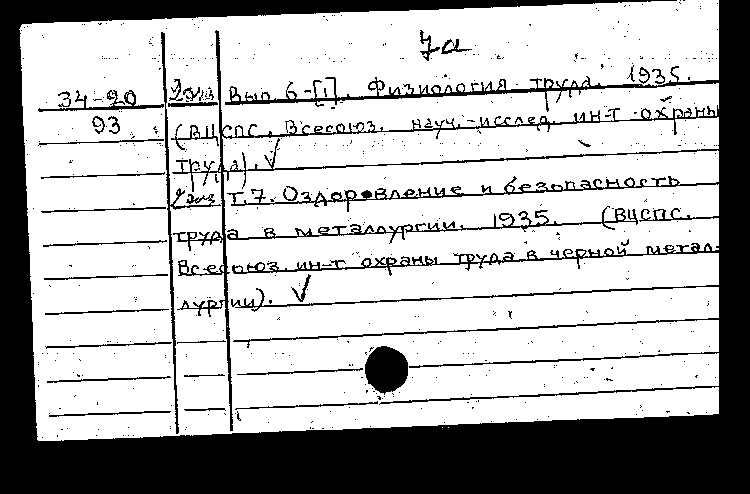 7а
34-20 2экз Вып. 6-[1]. Физиология труда. 1935.
93 (ВЦСПС. Всесоюз. науч.-исслед. ин-т охраны
труда). ✓
2экз Т.7. Оздоровление и безопасность
труда в металлургии. 1935. (ВЦСПС.
Всесоюз. ин-т охраны труда в черной метал-
лургии). ✓